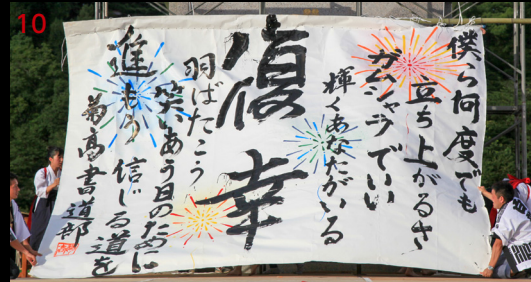 10
僕ら何度でも
立ち上がるさ
ガムシャラでいい
輝くあなたがいる
復幸
羽ばたこう
笑いあう日のために
進もう 信じる道を
蒟高書道部